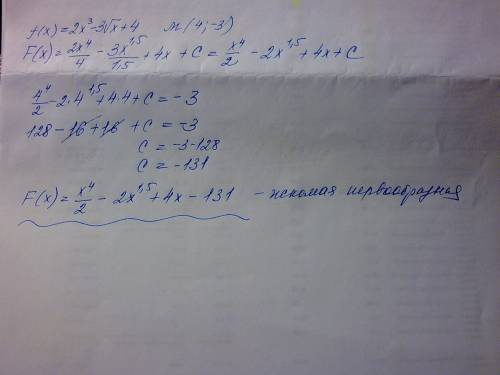 f(x) = 2x³ - 3√x + 4 M(4; -3)
F(x) = 2x⁴/4 - 3x^1,5/1,5 + 4x + C = x⁴/2 - 2x^1,5 + 4x + C
4⁴/2 - 2·4^1,5 + 4·4 + C = -3
128 - 16 + 16 + C = -3
C = -3 - 128
C = -131
F(x) = x⁴/2 - 2x^1,5 + 4x - 131 - искомая первообразная